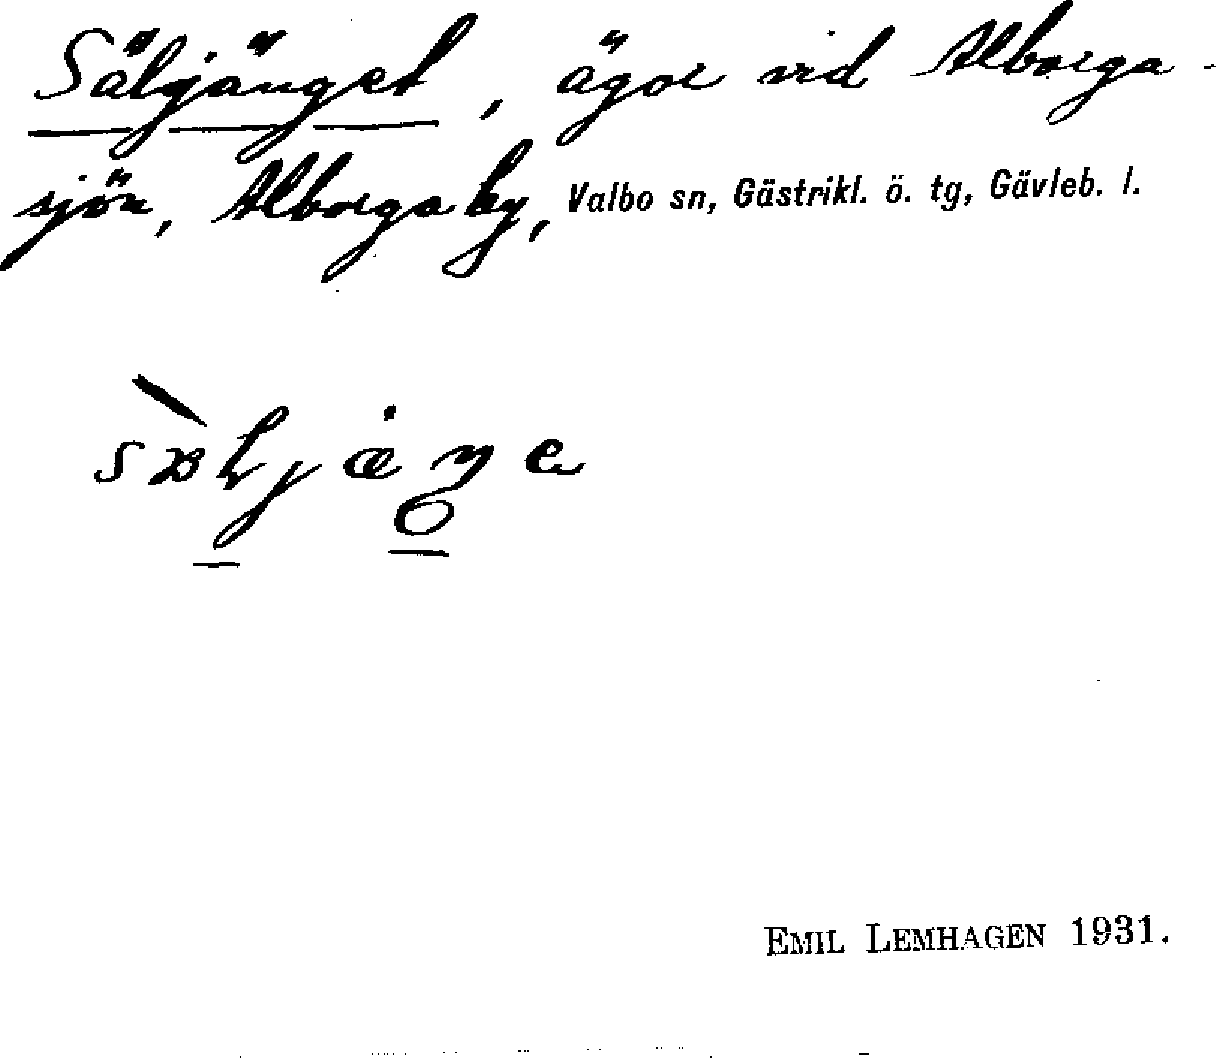 Säljänget, ägor vid Alborga-
sjön, Alborga by, Valbo sn, Gästrikl. ö. tg, Gävleb. l.
EMIL LEMHAGEN 1931.